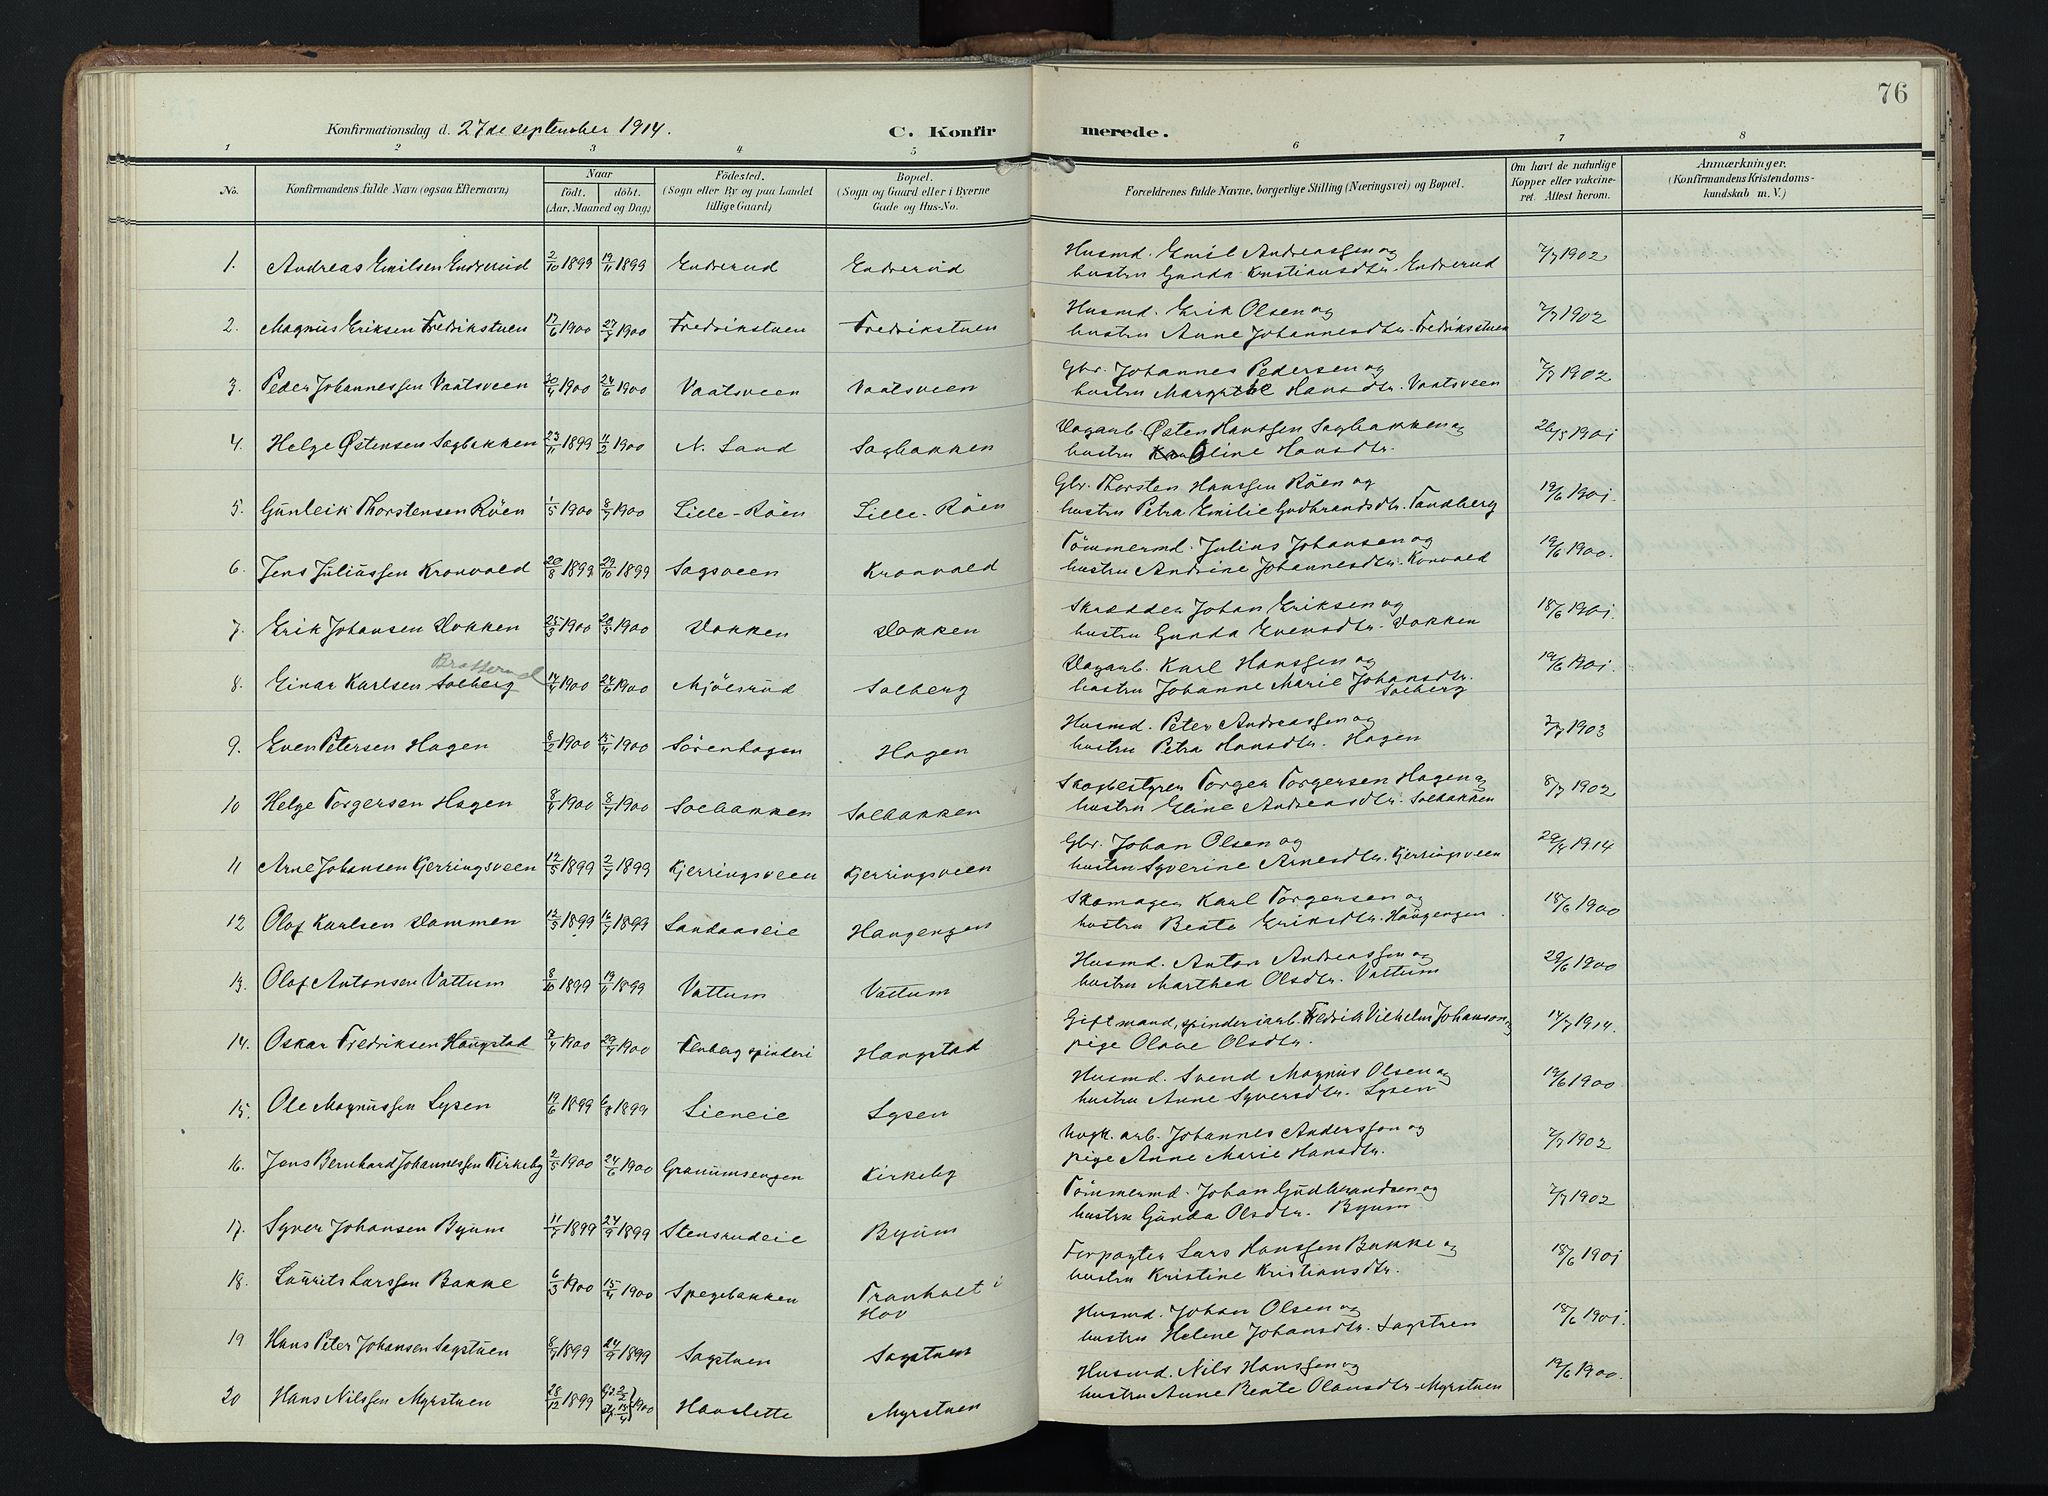 76
Konfirmationsdag d. 27de september 1914.
C. Konfirmerede.
1 2 3 4 5 6 7 8
No.
Konfirmandens fulde Navn (ogsaa Efternavn)
Naar
født. døbt.
(Aar, Maaned og Dag)
Fødested.
(Sogn eller By og paa Landet
tillige Gaard)
Bopæl.
(Sogn og Gaard eller i Byerne
Gade og Hus-No.
Forældrenes fulde Navne, borgerlige Stilling (Næringsvei) og Bopæl.
Om havt de naturlige
Kopper eller vakcine-
ret. Attest herom.
Anmærkninger.
(Konfirmandens Kristendoms-
kundskab m. V.)
1. Andreas Emilsen Endrerud 2/10 1899 19/11 1899 Endrerud Endrerud Husmd. Emil Andreassen og 7/7 1902
hustru Gunda Kristiansdtr. Endrerud
2. Magnus Eriksen Fredrikstuen 17/6 1900 27/7 1900 Fredrikstuen Fredrikstuen Husmd. Erik Olsen og 7/7 1902
hustru Anne Johannesdtr. Fredriksstuen
3. Peder Johannessen Vaatsveen 20/4 1900 24/6 1900 Vaatsveen Vaatsveen Gbr. Johannes Pedersen og 7/7 1902
hustru Margrethe Hansdtr. Vaatsveen
4. Helge Østensen Sagbakken 23/11 1899 11/2 1900 N. Sand Sagbakken Dagarb. Østen Hanssen Sagbakken og 26/5 1901
hustru Oline Hansdtr.
5. Gunleik Thorstensen Röen 1/5 1900 8/7 1900 Lille-Röen Lille-Röen Gbr. Thorsten Hanssen Röen og 19/6 1901.
hustru Petra Emilie Gudbrandsdtr. Tandberg
6. Jens Juliussen Kronvold 20/8 1899 29/10 1899 Sagsveen Kronvold Tömmermd. Julius Johansen og 19/6 1900.
hustru Andrine Johannesdtr. Konvald
7. Erik Johansen Dokken 25/3 1900 20/5 1900 Dokken Dokken Skrædder Johan Eriksen og 18/6 1901.
hustru Gunda Evensdtr. Dokken
Bratterud
8. Einar Karlsen Solberg 14/4 1900 24/6 1900 Mjölsrud Solberg Dagarb. Karl Hanssen og 19/6 1901
hustru Johanne Marie Johansdtr.
Solberg
9. Even Petersen Hagen 8/2 1900 15/4 1900 Sörenhagen Hagen Husmd. Peter Andreassen og 3/7 1903
hustru Petra Hansdtr. Hagen
10 Helge Torgersen Hagen 8/4 1900 8/7 1900 Solbakken Solbakken Skogbestyrer Torger Torgersen Hagen og 8/7 1902
hustru Eline Andreasdtr. Solbakken
11 Arne Johansen Kjerringsveen 12/5 1899 2/7 1899 Kjerringsveen Kjerringsveen Gbr. Johan Olsen og 29/4 1914
hustru Syverine Arnesdtr. Kjerringsveen
12 Olaf Karlsen Dammen 12/5 1899 16/7 1899 Sandaaseie Haugengen Skomager Karl Torgersen og 18/6 1900
hustru Beate Eriksdtr. Haugengen
13. Olaf Antonsen Vattum 8/10 1899 19/11 1899 Vattum Vattum Husmd. Anton Andreassen og 29/6 1900
hustru Marthea Olsdtr. Vattum
14. Oskar Fredriksen Haugstad 7/4 1900 29/7 1900 Fluberg spinderi Haugstad Gift mand, spinderiarb. Fredrik Vilhelm Johanson og 14/7 1914.
pige Olave Olsdtr.
15. Ole Magnussen Lysen 19/6 1899 6/8 1899 Lieneie Lysen Husmd. Svend Magnus Olsen og 19/6 1900
hustru Anne Syversdtr. Lysen
16. Jens Bernhard Johannessen Kirkeby 2/5 1900 24/6 1900 Granumsengen Kirkeby Ugk. arb. Johannes Anderson og 7/7 1902
pige Anne Marie Hansdtr.
17. Syver Johansen Byum 11/7 1899 24/9 1899 Stensrudeie Byum Tömmermd. Johan Gudbrandsen og 7/7 1902
hustru Gunda Olsdtr. Byum
18. Laurits Larssen Bakke 6/3 1900 15/4 1900 Spegebakken Tranholt i Forpagter Lars Hanssen Bakke og 18/6 1901
Hov hustru Kristine Kristiansdtr.
19 Hans Peter Johansen Sagstuen 8/7 1899 24/9 1899 Sagstuen Sagstuen Husmd. Johan Olsen og 18/6 1901.
hustru Helene Johansdtr. Sagstuen
20 Hans Nilssen Myrstuen 28/12 1899 1900 Haveslette Myrstuen Husmd. Nils Hanssen og 19/6 1900.
hustru Anne Beate Olausdtr. Myrstuen